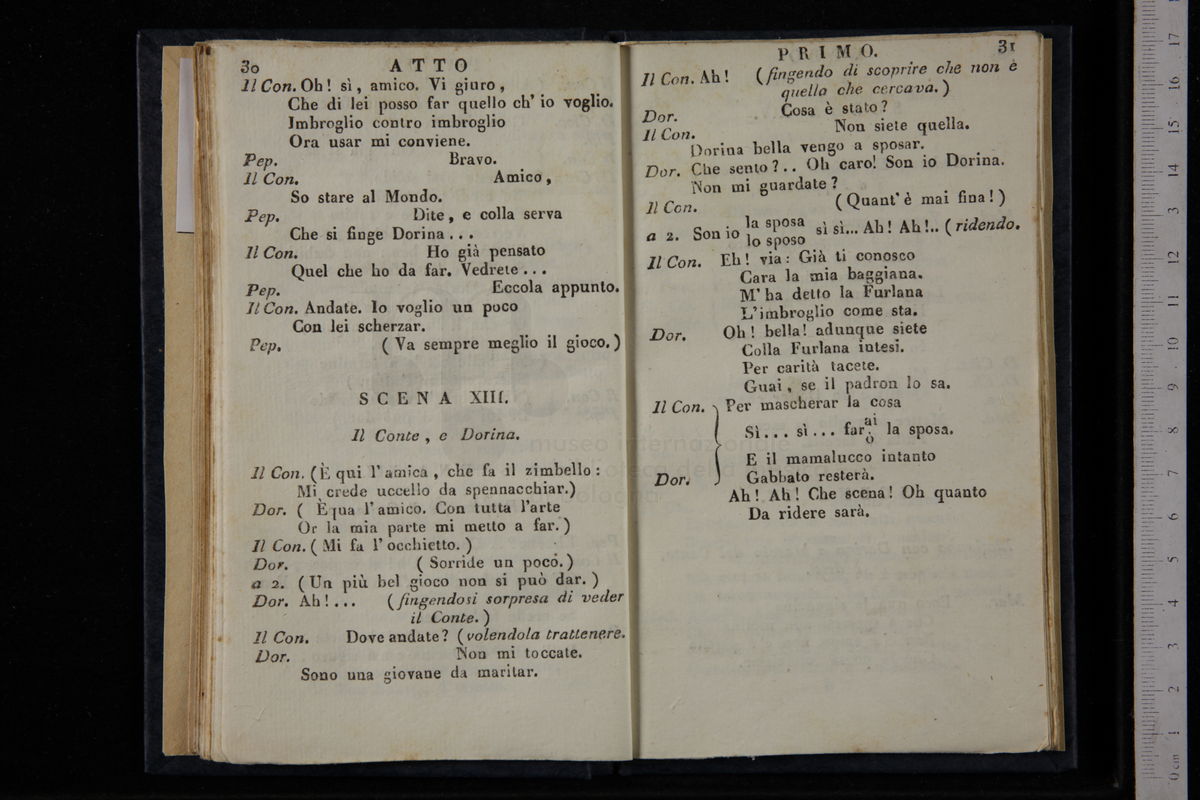 30 ATTO
Il Con. Oh! sì, amico. Vi giuro,
Che di lei posso far quello ch' io voglio.
Imbroglio contro imbroglio
Ora usar mi conviene.
Pep. Bravo.
Il Con. Amico,
So stare al Mondo.
Pep. Dite, e colla serva
Che si finge Dorina...
Il Con. Ho già pensato
Quel che ho da far. Vedrete...
Pep. Eccola appunto.
Il Con. Andate. Io voglio un poco
Con lei scherzar.
Pep. (Va sempre meglio il gioco.)
SCENA XIII.
Il Conte, e Dorina.
Il Con. (È qui l'amica, che fa il zimbello:
Mi crede uccello da spennacchiar.)
Dor. ( È qua l'amico. Con tutta l'arte
Or la mia parte mi metto a far.)
Il Con. (Mi fa l'occhietto.)
Dor. (Sorride un poco.)
a 2. (Un più bel gioco non si può dar.)
Dor. Ah!... (fingendosi sorpresa di veder
il Conte.)
Il Con. Dove andate? (volendola trattenere.
Dor. Non mi toccate.
Sono una giovane da maritar.
PRIMO. 31
Il Con. Ah! (fingendo di scoprire che non è
quella che cercava.)
Dor. Cosa è stato?
Il Con. Non siete quella.
Dorina bella vengo a sposar.
Dor. Che sento?.. Oh caro! Son io Dorina.
Non mi guardate?
Il Con. (Quant' è mai fina!)
a 2. Son io la sposa sì sì... Ah! Ah!.. (ridendo.
lo sposo
Il Con. Eh! via: Già ti conosco
Cara la mia baggiana.
M' ha detto la Furlana
L'imbroglio come sta.
Dor. Oh! bella! adunque siete
Colla Furlana intesi.
Per carità tacete.
Guai, se il padron lo sa.
Il Con. Per mascherar la cosa
Sì... sì... far ai la sposa.
ò
E il mamalucco intanto
Dor. Gabbato resterà.
Ah! Ah! Che scena! Oh quanto
Da ridere sarà.
museo internazionale